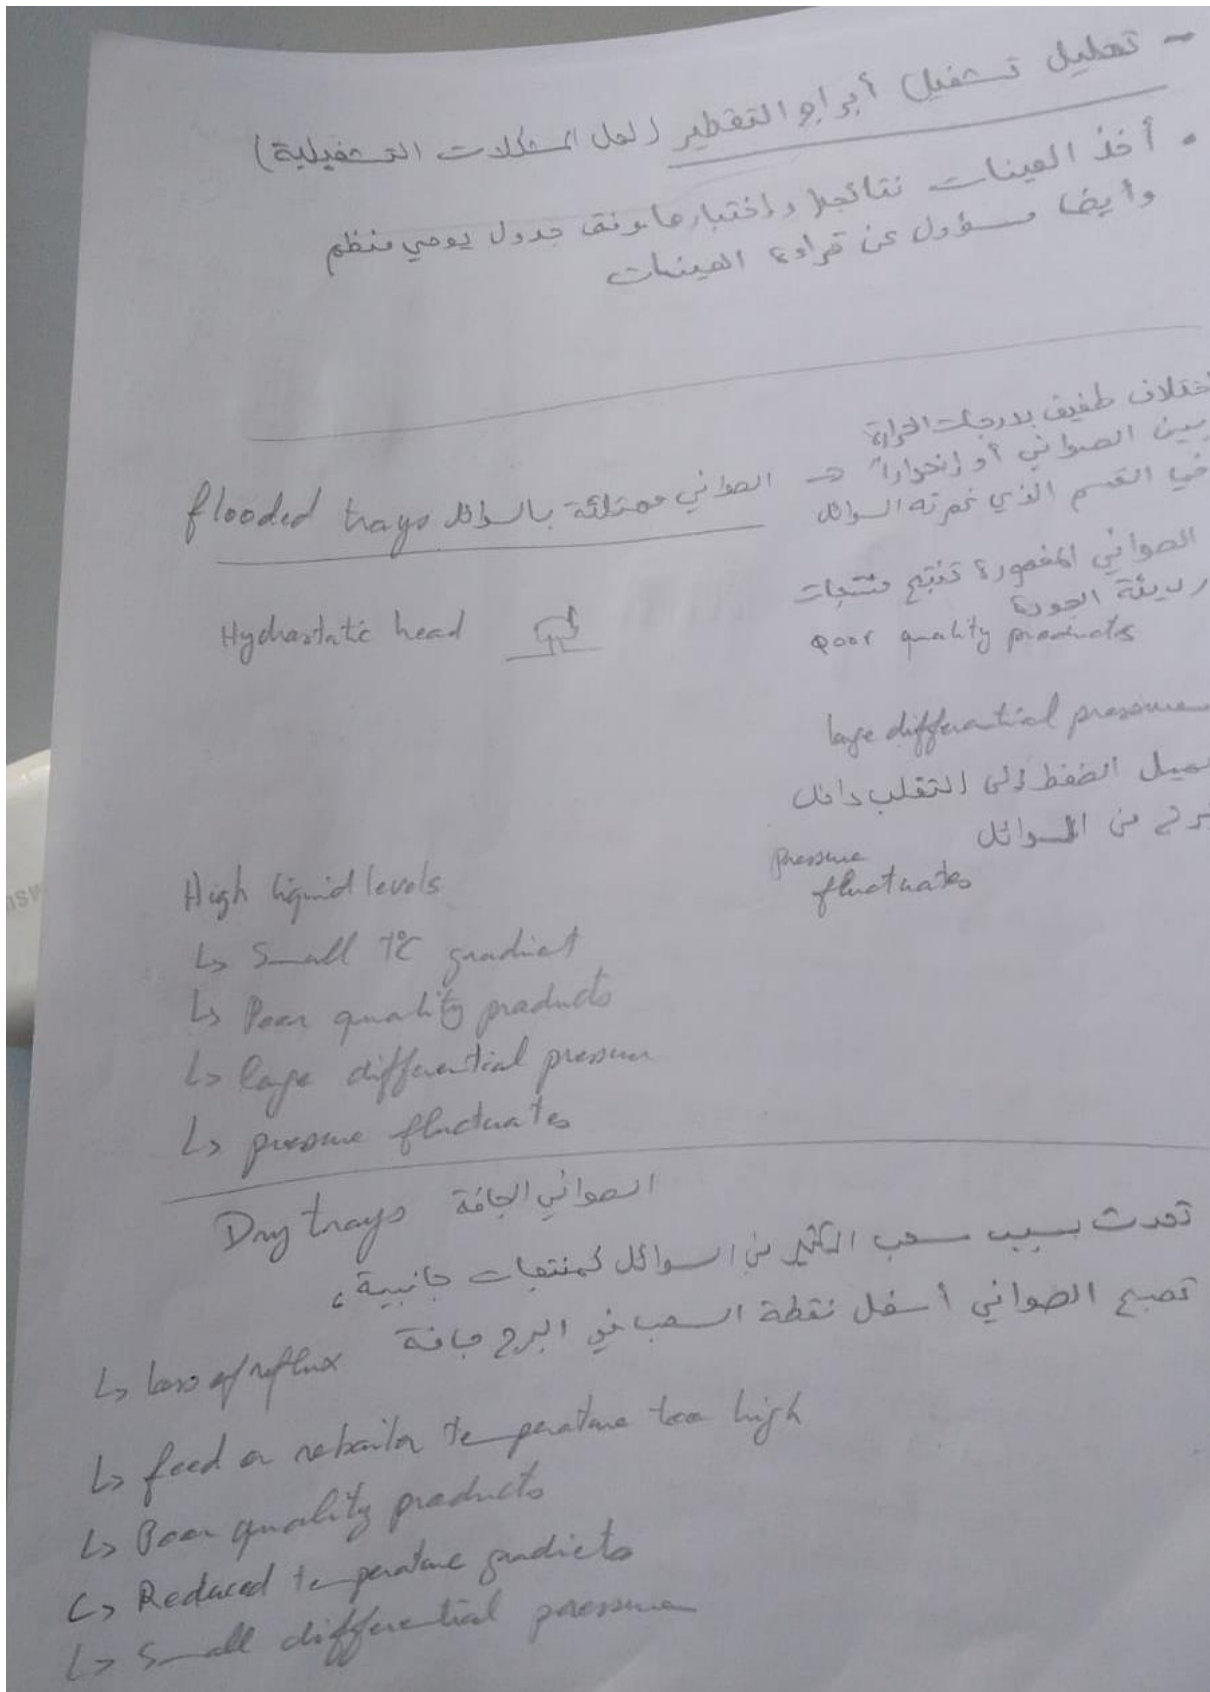 - تحليل تشغيل أبراج التقطير (لحل المشكلات التشغيلية)
• أخذ العينات نتائجها واختبارها وفق جدول يومي منظم
وأيضا مسؤول عن قراءة العينات
اختلاف طفيف بدرجات الحرارة
بين الصواني أو إنحدارا
في القسم الذي غمرته السوائل
flooded trays الصواني ممتلئة بالسوائل →
الصواني المغمورة تنتج منتجات
رديئة الجودة
poor quality products
Hydrostatic head
large differential pressure
يميل الضغط إلى التقلب داخل
من السوائل
pressure
fluctuates
High liquid levels
↳ Small T°C gradiet
↳ Poor quality products
↳ large differential pressure
↳ pressure fluctuates
Dry trays الصواني الجافة
تحدث بسبب سحب الكثير من السوائل كمنتجات جانبية،
تصبح الصواني أسفل نقطة السحب في البرج جافة
↳ loss of reflux
↳ feed or reboiler temperature too high
↳ Poor quality products
↳ Reduced temperature gradiets
↳ Small differential pressure